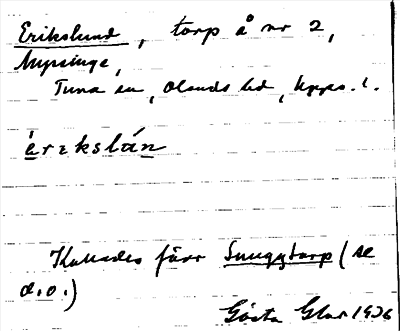 Erikslund, torp å nr 2,
Myssinge,
Tuna sn, Olands hd, Upps. l.
èrɛkslán
Kallades förr Snuggtorp (se
d.o.)
Gösta Glas 1926